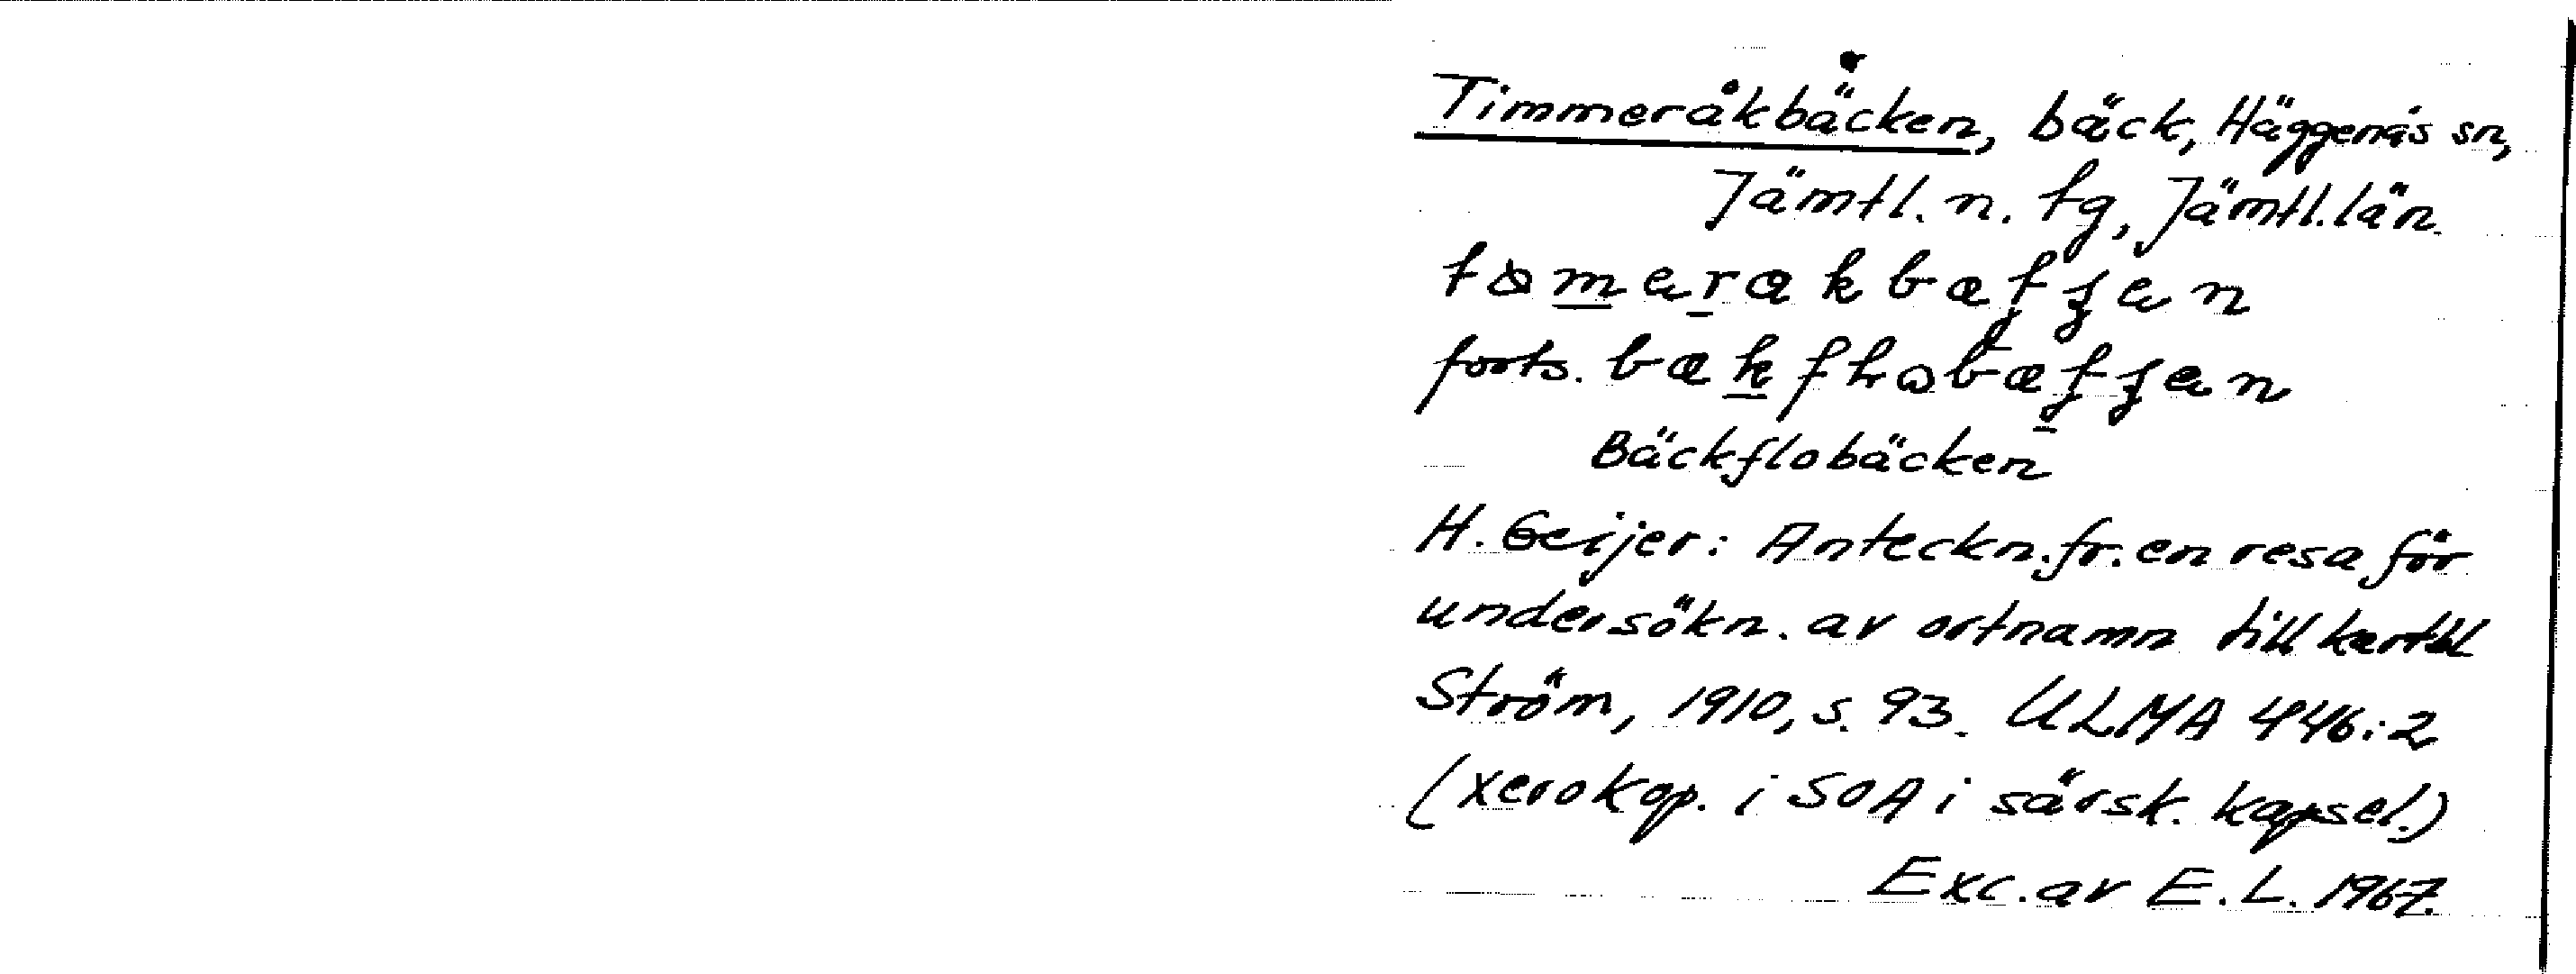 Timmeråkbäcken, bäck, Häggenås sn,
Jämtl. n. tg, Jämtl. län
forts.
Bäckflobäcken
H. Geijer: Anteckn. fr. en resa för
undersökn. av ortnamn till kartbl
Ström, 1910, s. 93. ULMA 446:2
(xerokop. i SOA i särsk. kapsel.)
Exc. av E. L. 1967.